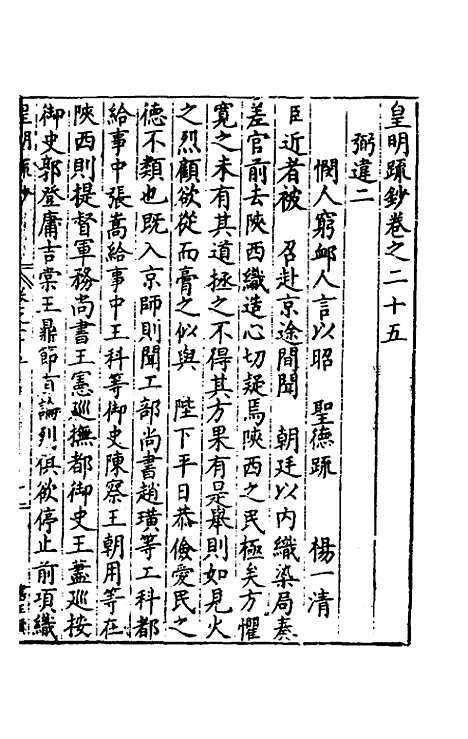 皇明疏鈔卷之二十五
弼違二
憫人窮邺人言以昭　聖德疏　楊一清
臣近者被　召赴京途間聞　朝廷以内織染局奏
差官前去陝西織造心切疑焉陝西之民極矣方懼
寛之未有其道拯之不得其方果有是舉則如見火
之烈顧欲從而膏之似與　陛下平日恭儉愛民之
德不類也既入京師則聞工部尚書趙璜等工科都
給事中張嵩給事中王科等御史陳察王朝用等在
陝西則提督軍務尚書王憲巡撫都御史王藎巡按
御史郭登庸吉棠王鼎節有論列俱欲停止前項織
皇明疏鈔